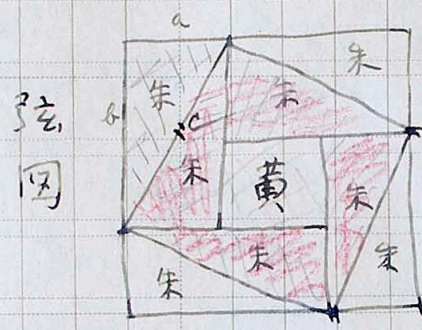 弦
図
a
b
c
朱
朱
朱
朱
黄
朱
朱
朱
朱